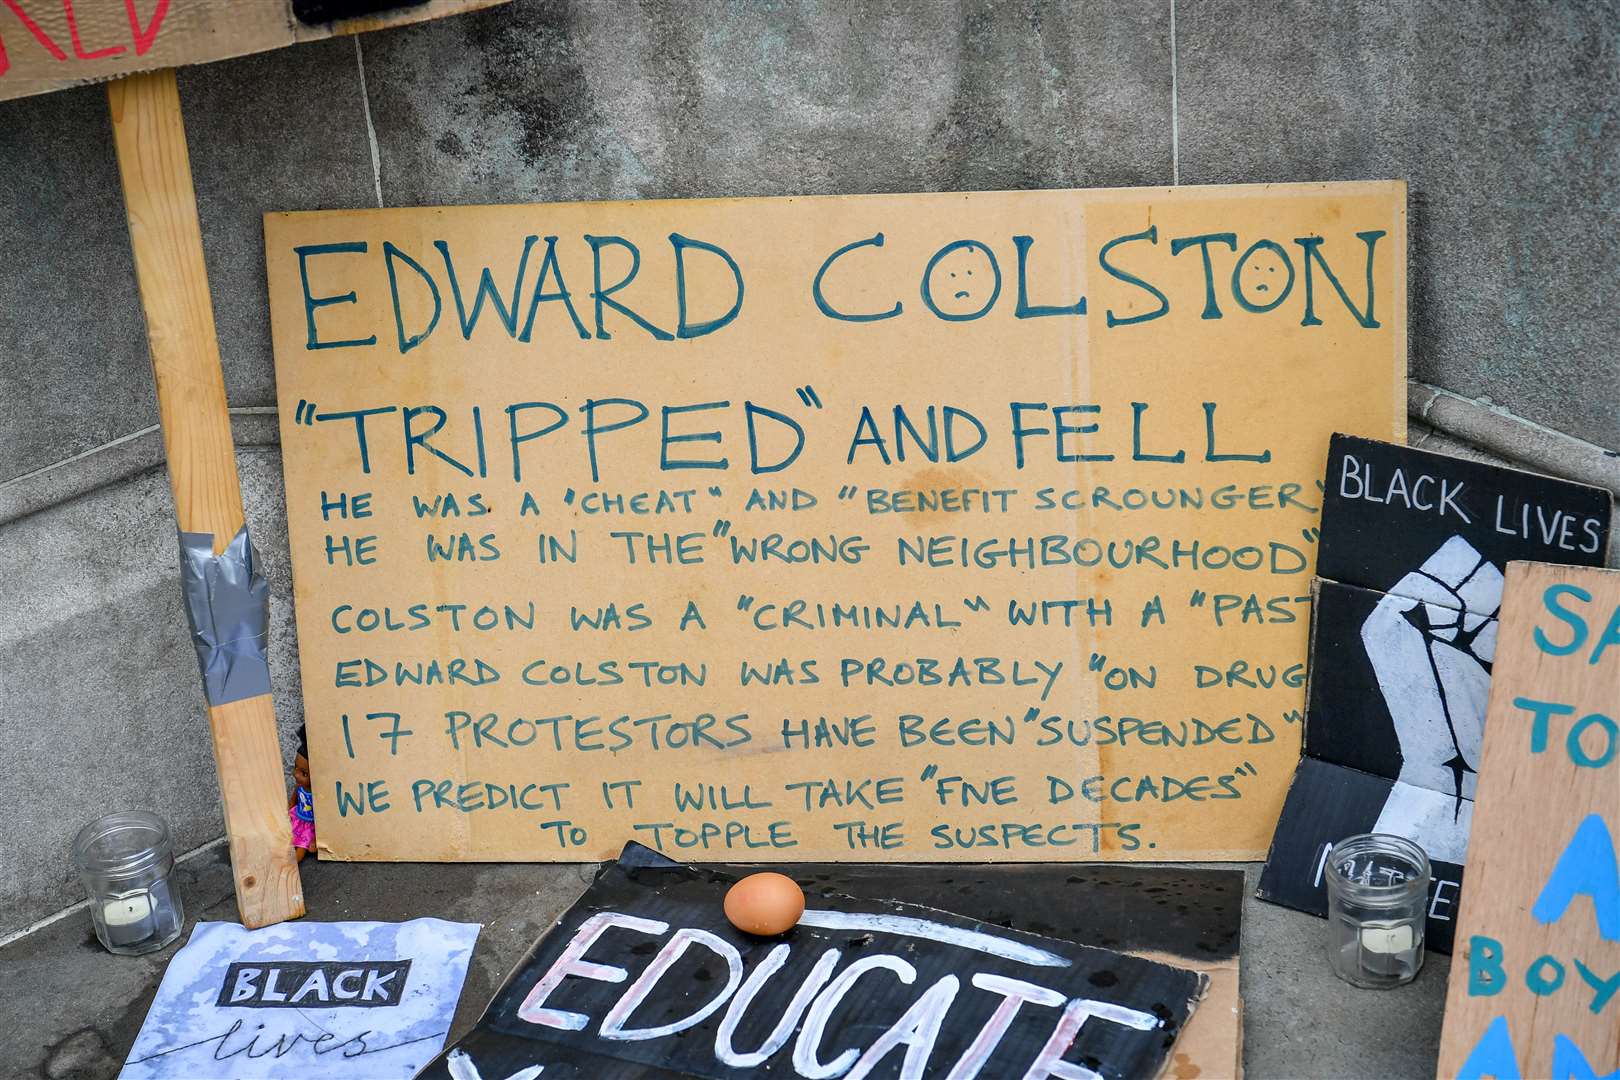 EDWARD COLSTON
"TRIPPED" AND FELL
HE WAS A "CHEAT" AND "BENEFIT SCROUNGER"
HE WAS IN THE "WRONG NEIGHBOURHOOD"
COLSTON WAS A "CRIMINAL" WITH A "PAST
EDWARD COLSTON WAS PROBABLY "ON DRUG
17 PROTESTORS HAVE BEEN "SUSPENDED"
WE PREDICT IT WILL TAKE "FIVE DECADES"
TO TOPPLE THE SUSPECTS.
BLACK LIVES
BLACK
lives
EDUCATE
TO
BOY